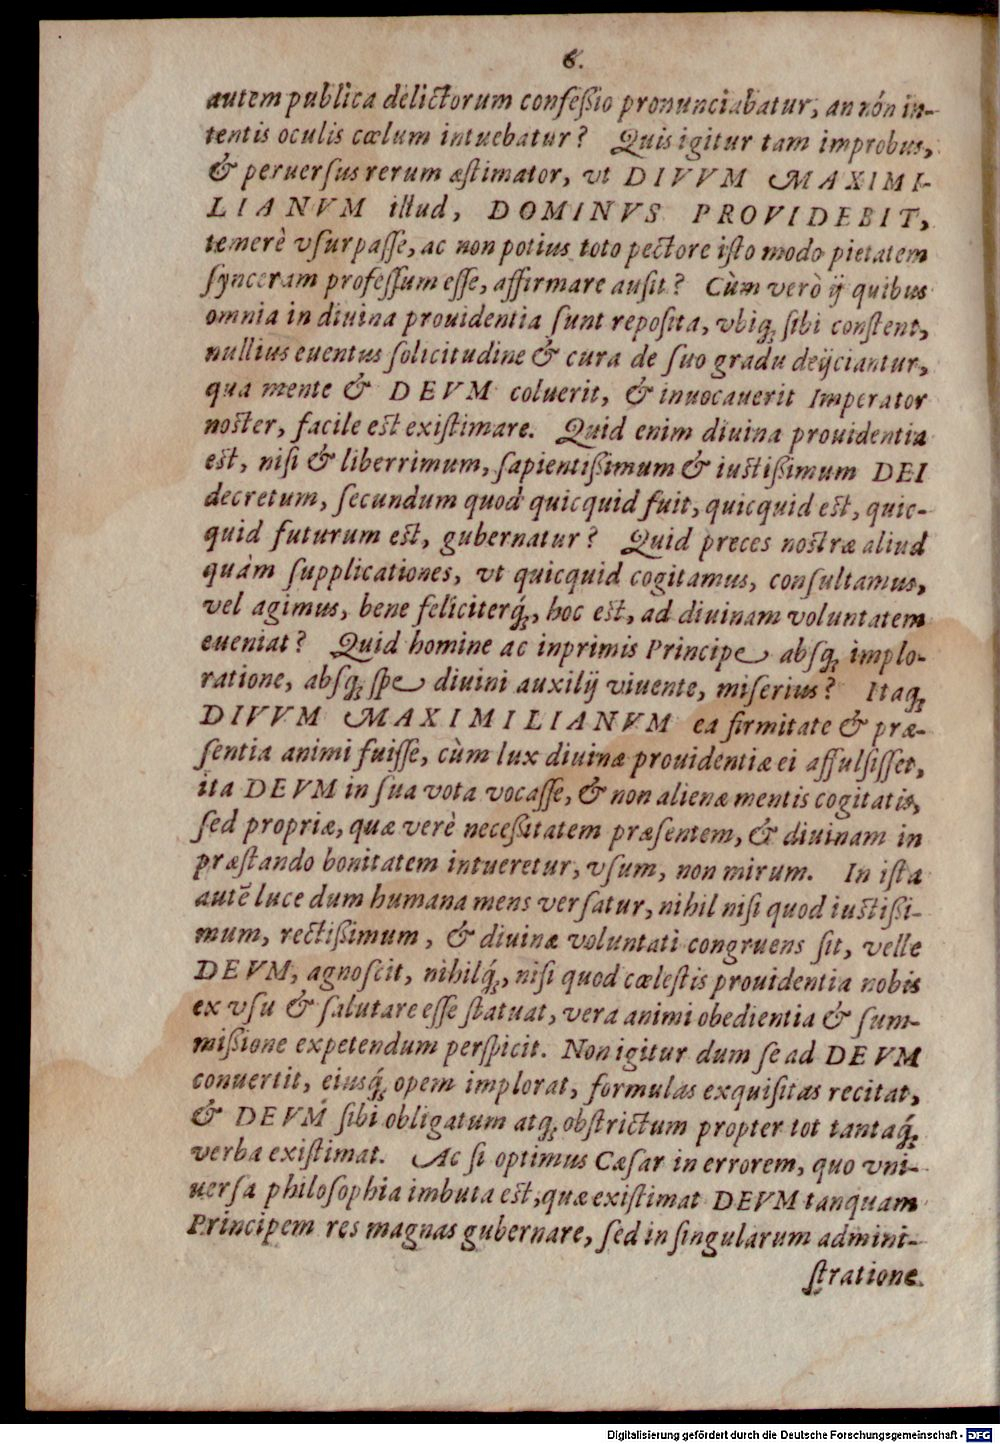 6.
autem publica delictorum confeßio pronunciabatur, an nón in-
tentis oculis cœlum intuebatur? Quis igitur tam improbus,
& peruerſus rerum æſtimator, vt DIVVM MAXIMI-
LIANVM illud, DOMINVS PROVIDEBIT,
temerè vſurpaſſe, ac non potius toto pectore iſto modo pietatem
ſynceram profeſſum eſſe, affirmare auſit? Cùm verò ij quibus
omnia in diuina prouidentia ſunt repoſita, vbiq; ſibi conſtent,
nullius euentus ſolicitudine & cura de ſuo gradu deijciantur,
qua mente & DEVM coluerit, & inuocauerit Imperator
noster, facile est exiſtimare. Quid enim diuina prouidentia
est, niſi & liberrimum, ſapientißimum & iustißimum DEI
decretum, ſecundum quod quicquid fuit, quicquid est, quic-
quid futurum est, gubernatur? Quid preces nostræ aliud
quàm ſupplicationes, vt quicquid cogitamus, conſultamus,
vel agimus, bene feliciterq́;, hoc est, ad diuinam voluntatem
eueniat? Quid homine ac inprimis Principe abſq; implo-
ratione, abſq; ſpe diuini auxilij viuente, miſerius? Itaq;
DIVVM MAXIMILIANVM ea firmitate & præ-
ſentia animi fuiſſe, cùm lux diuinæ prouidentiæ ei affulſiſſet,
ita DEVM in ſua vota vocaſſe, & non alienæ mentis cogitatis,
ſed propriæ, quæ verè neceßitatem præſentem, & diuinam in
præſtando bonitatem intueretur, vſum, non mirum. In iſta
autē luce dum humana mens verſatur, nihil niſi quod iustißi-
mum, rectißimum, & diuinæ voluntati congruens ſit, velle
DEVM, agnoſcit, nihilq́;, niſi quod cæleſtis prouidentia nobis
ex vſu & ſalutare eſſe ſtatuat, vera animi obedientia & ſum-
mißione expetendum perſpicit. Non igitur dum ſe ad DEVM
conuertit, eiusq́; opem implorat, formulas exquiſitas recitat,
& DEVM ſibi obligatum atq; obſtrictum propter tot tantaq́;
verba exiſtimat. Ac ſi optimus Cæſar in errorem, quo vni-
uerſa philoſophia imbuta est, quæ exiſtimat DEVM tanquam
Principem res magnas gubernare, ſed in ſingularum admini-
ſtratione
Digitalisierung gefördert durch die Deutsche Forschungsgemeinschaft - DFG